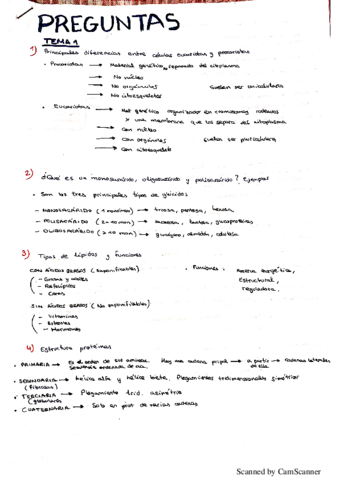 PREGUNTAS
TEMA 1
1) Principales diferencias entre células eucariotas y procariotas
• Procariotas → Material genético no separado del citoplasma
→ No núcleo
→ No orgánulos suelen ser unicelulares
→ No citoesqueleto
• Eucariotas → Mat genético organizado en cromosomas rodeados
x una membrana que los separa del citoplasma
→ Con núcleo
→ Con orgánulos suelen ser pluricelulares
→ Con citoesqueleto
2) ¿Qué es un monosacárido, oligosacárido y polisacárido? Ejemplos
• Son los tres principales tipos de glúcidos
- MONOSACÁRIDO (1 monom) → triosa, pentosa, hexosa
- POLISACÁRIDO → glucoproteínas
- OLIGOSACÁRIDO → almidón, celulosa
3) Tipos de lípidos y funciones
CON ÁCIDOS GRASOS (saponificables) • Funciones: - Reserva energética,
- Grasas y aceites Estructural,
- Fosfolípidos reguladora.
- Ceras
SIN ÁCIDOS GRASOS (No saponificables)
- Vitaminas
- Esteroles
- Hormonas
4) Estructura proteínas
• PRIMARIA → Es el orden de sus aminoac. Hay una cadena → a partir → cadenas laterales
Secuencia ordenada de aa. de ella
• SECUNDARIA → hélice alfa y hélice beta. Plegamientos tridimensionales simétricos
(fibrosas)
• TERCIARIA → Plegamiento trid. asimétrico
(globulares)
• CUATERNARIA → Solo en prot de varias cadenas
Scanned by CamScanner